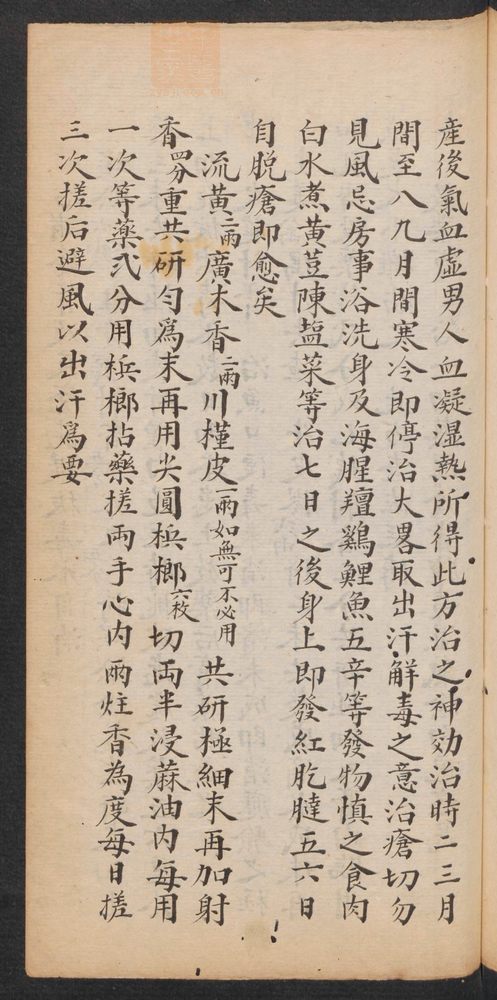 産後氣血虛男人血凝湿熱所得此方治之神効治時二三月
間至八九月間寒冷即停治大畧取出汗解毒之意治瘡切勿
見風忌房事浴洗身及海腥羶鷄鯉魚五辛等發物慎之食肉
白水煮黃荳陳塩菜等治七日之後身上即發紅肐𦢊五六日
自脱瘡即愈矣
流黃二兩廣木香二兩川槿皮一兩如無可不必用共研極細末再加射
香四分重共研匀爲末再用尖圓梹榔六枚切両半浸蔴油内每用
一次等藥弍分用梹榔拈藥搓両手心内兩炷香為度每日搓
三次搓后避風以出汗爲要